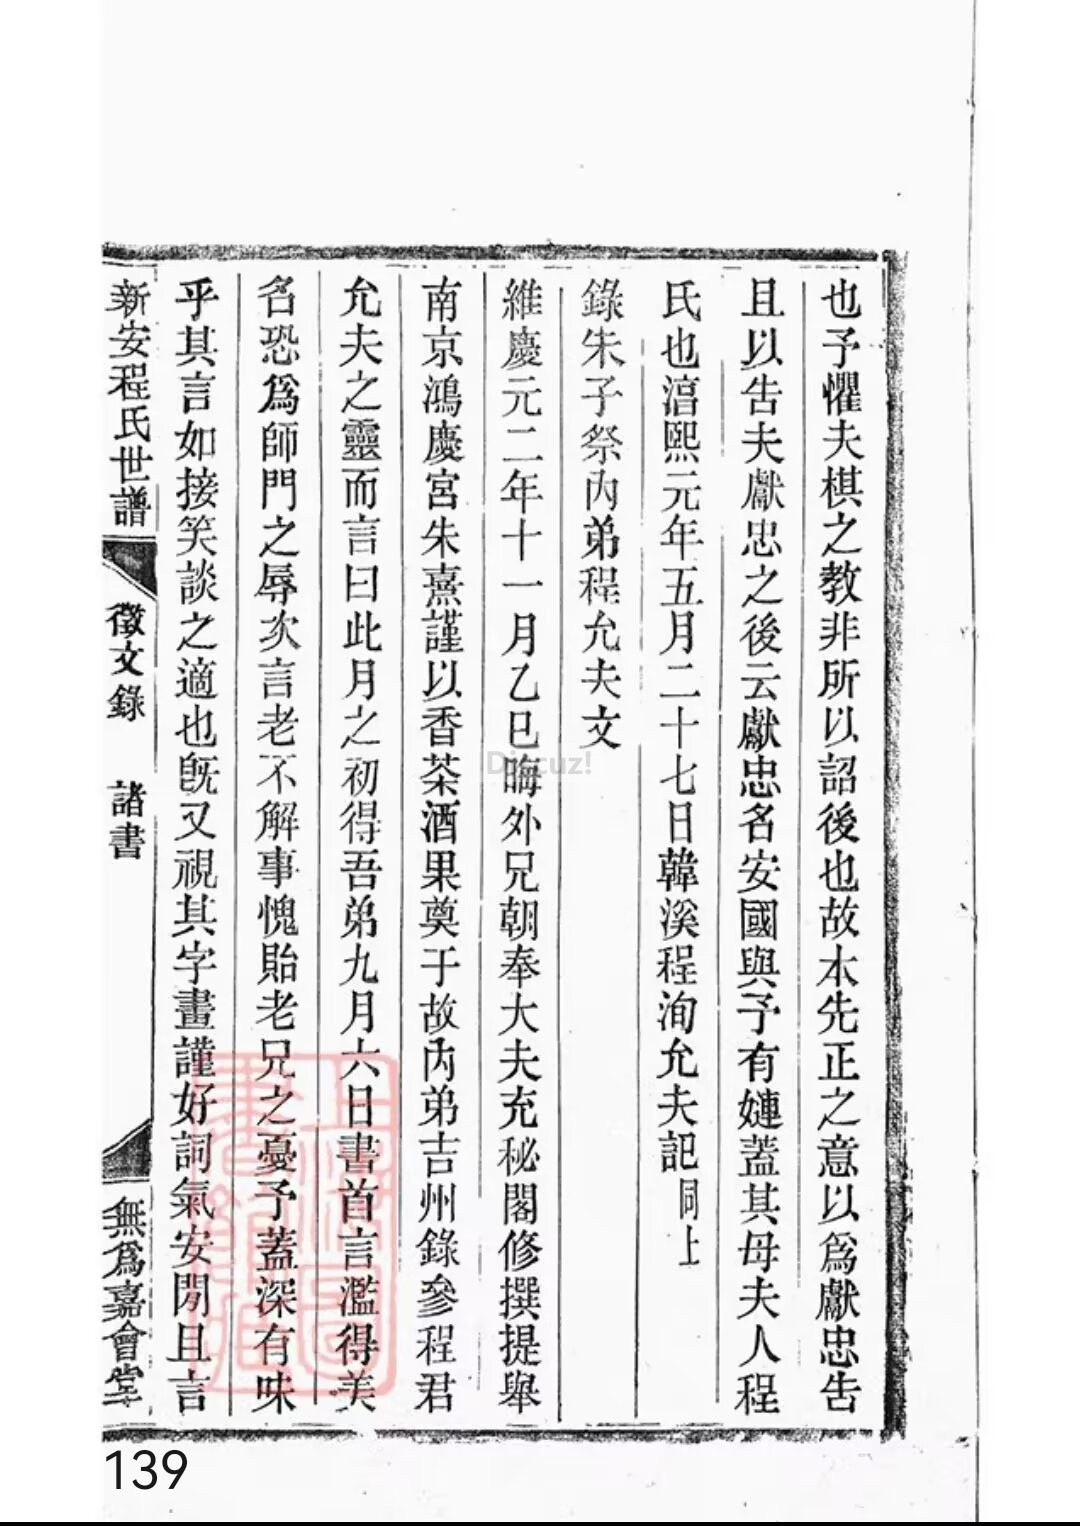 也予懼夫棋之教非所以詔後也故本先正之意以爲獻忠告
且以告夫獻忠之後云獻忠名安國與予有嫌蓋其母夫人程
氏也淳熙元年五月二十七日韓溪程洵允夫記同上
錄朱子祭內弟程允夫文
維慶元二年十一月乙巳晦外兄朝奉大夫充秘閣修撰提舉
南京鴻慶宮朱熹謹以香茶酒果奠于故內弟吉州錄參程君
允夫之靈而言曰此月之初得吾弟九月六日書首言濫得美
名恐爲師門之辱次言老不解事愧貽老兄之憂予蓋深有味
乎其言如接笑談之適也旣又視其字畫謹好詞氣安閒且言
新安程氏世譜 徵文錄 諸書 無爲嘉會堂
Discuz!
139